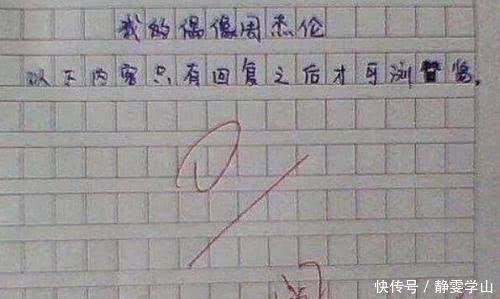 我的偶像周杰伦
以下内容只有回复之后才可浏览。
快传号／静雯学山